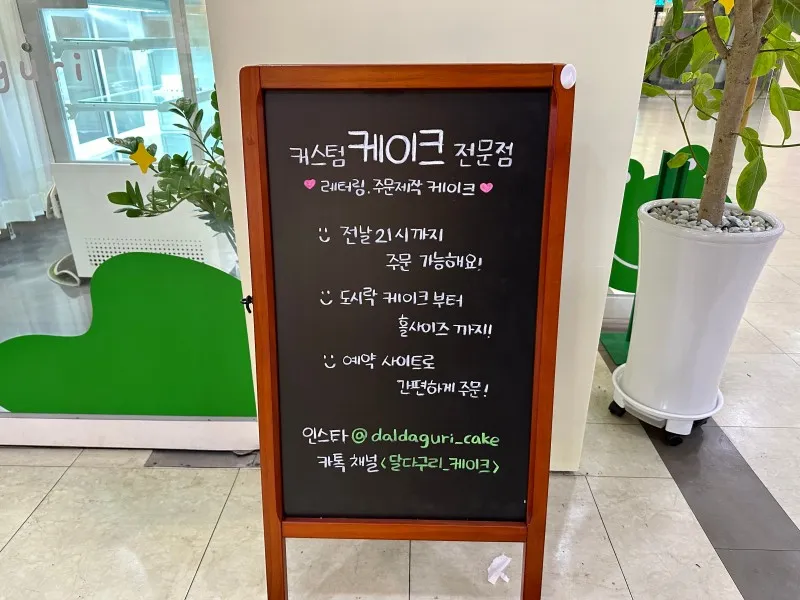 guri
커스텀 케이크 전문점
레터링, 주문제작 케이크
전날 21시까지
주문 가능해요!
도시락 케이크부터
홀사이즈 까지!
예약 사이트로
간편하게 주문!
인스타 @daldaguri_cake
카톡 채널 <달다구리_케이크>